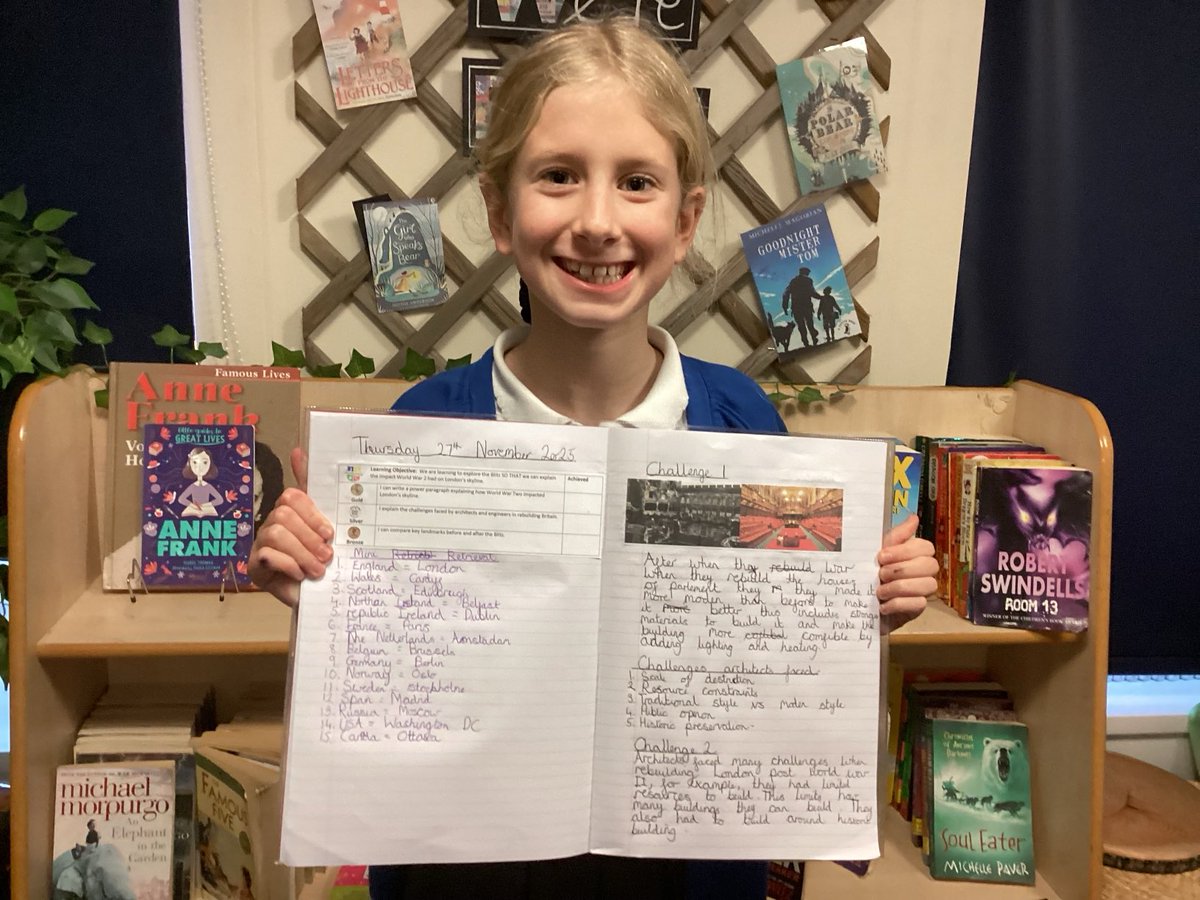 We're
LETTERS
FROM THE
LIGHTHOUSE
POLAR
BEAR
The
Girl
Who
Speaks
Bear
MICHELLE MAGORIAN
GOODNIGHT
MISTER
TOM
Famous Lives
Anne
Frank
little guides to
GREAT LIVES
ANNE
FRANK
ISABEL THOMAS
Thursday 27th November 2025
Learning Objective: We are learning to explore the Blitz SO THAT we can explain
the impact World War 2 had on London's skyline.
Achieved
I can write a power paragraph explaining how World War Two impacted
London's skyline.
Gold
I explain the challenges faced by architects and engineers in rebuilding Britain.
Silver
I can compare key landmarks before and after the Blitz.
Bronze
Mini Retrieval
1. England = London
2. Wales = Cardyf
3. Scotland = Edinbrugh
4. Northan Island = Belfast
5. republic Ireland = Dublin
6. France = Paris
7. The Netherlands = Amstadan
8. Belgiun = Brussels
9. Germany = Berlin
10. Norway = Oslo
11. Sweden = stockholne
12. Spain = Madrid
13. Russia = Moscow
14. USA = Washington DC
15. Canda = Ottawa
Challenge 1
After when they rebuild war
When they rebuild the houses
of parlement they made it
more moden that before to make
it more better this includes stronge
materials to build it and make the
building more comfible by
adding lighting and heating.
Challenges architects faced
1. Scale of destruction
2. Resource constraints
3. Traditional style vs moden style
4. Public opinion
5. Historic preservation.
Challenge 2
Architects faced many challenges when
rebuilding London post World war
II, for example, they had limited
resources to build. This limits how
many buildings they can build. They
also had to build around historic
building.
ROBERT
SWINDELLS
ROOM 13
WINNER OF THE CHILDREN'S BOOK AWARD
michael
morpurgo
An
Elephant
in the
Garden
FAMOUS
FIVE
Chronicles
of Ancient
Darkness
Soul Eater
MICHELLE PAVER